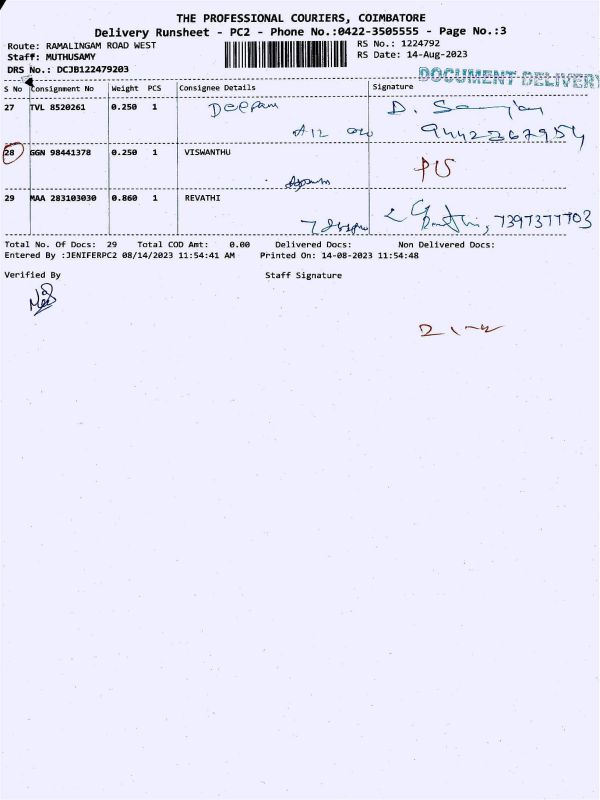 THE PROFESSIONAL COURIERS, COIMBATORE
Delivery Runsheet - PC2 - Phone No.:0422-3505555 - Page No.:3
Route: RAMALINGAM ROAD WEST RS No.: 1224792
Staff: MUTHUSAMY RS Date: 14-Aug-2023
DRS No.: DCJB122479203
DOCUMENT DELIVERY
S No Consignment No Weight PCS Consignee Details Signature
27 TVL 8520261 0.250 1 Deepam D.
9442367954
28 GGN 98441378 0.250 1 VISWANTHU
29 MAA 283103030 0.860 1 REVATHI
7397377703
Total No. Of Docs: 29 Total COD Amt: 0.00 Delivered Docs: Non Delivered Docs:
Entered By :JENIFERPC2 08/14/2023 11:54:41 AM Printed On: 14-08-2023 11:54:48
Verified By Staff Signature